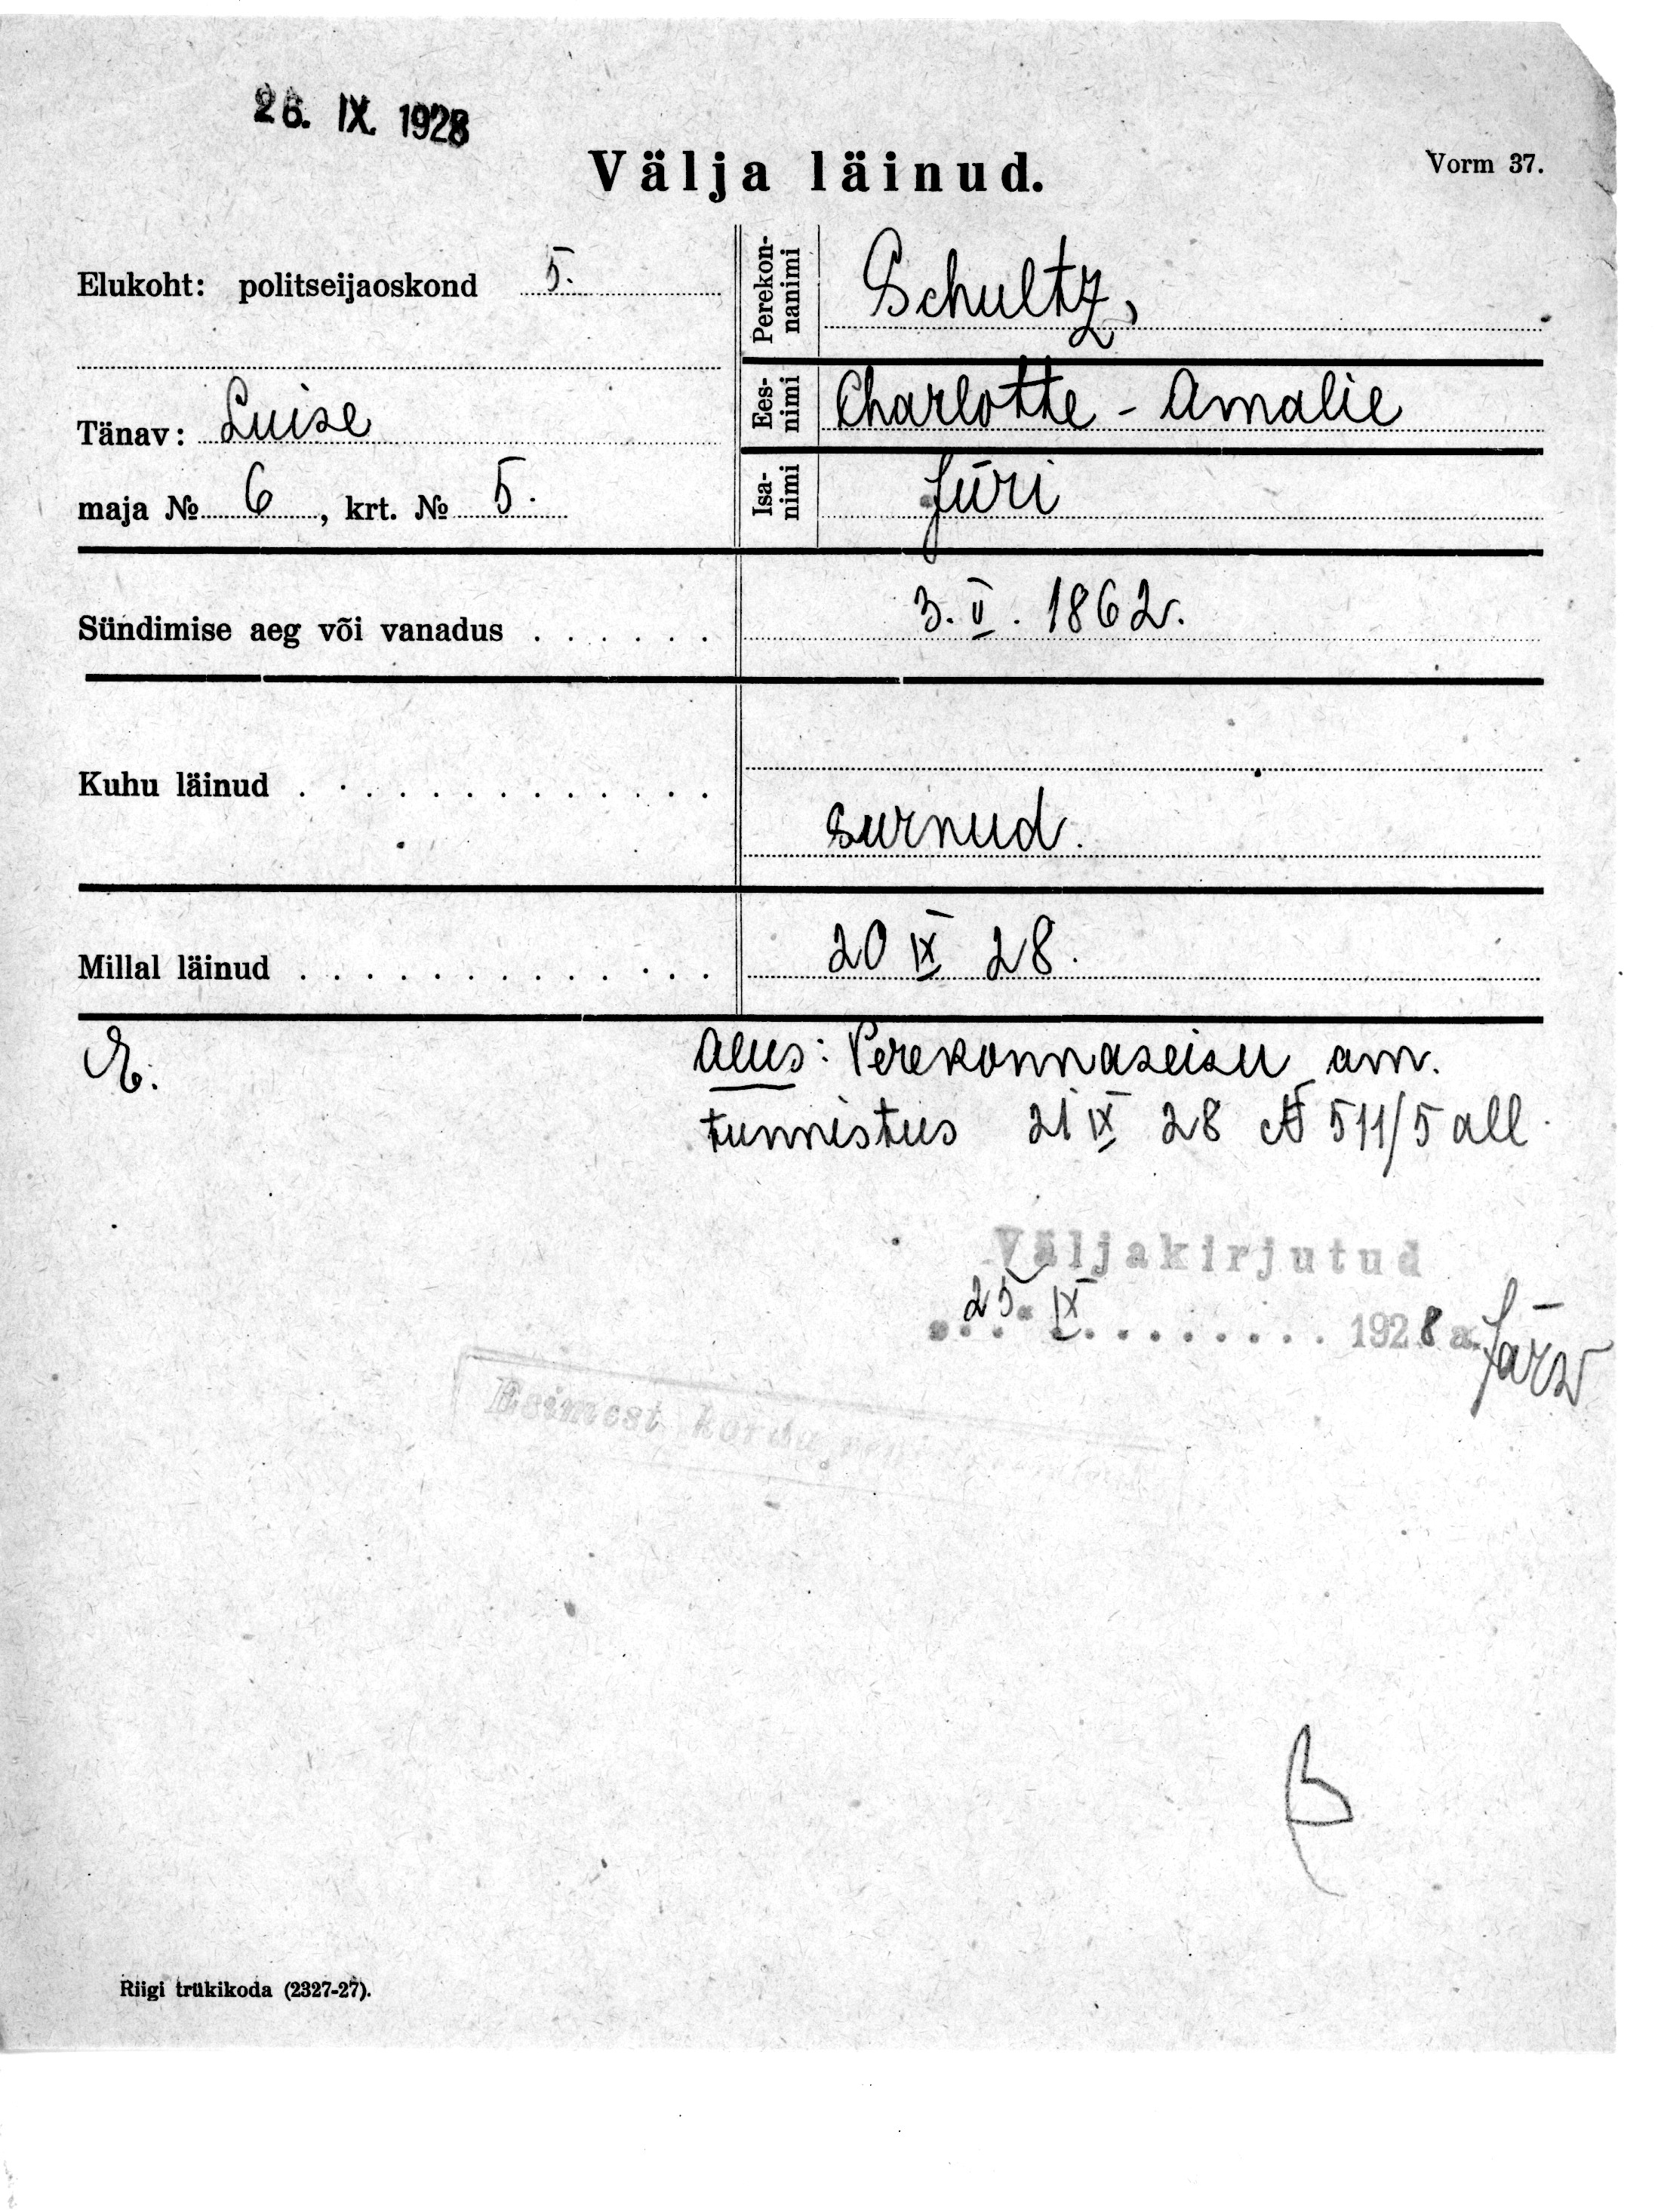 26. IX. 1928
Välja läinud.
Vorm 37.
Elukoht: politseijaoskond 5.
Tänav: Luise
maja № 6, krt. № 5.
Perekonnanimi Schultz,
Eesnimi Charlotte - Amalie
Isanimi Jüri
Sündimise aeg või vanadus . . . . . . 3. V. 1862.
Kuhu läinud . . . . . . . . . . . . . surnud.
Millal läinud . . . . . . . . . . . . . 20 IX 28.
E.
Alus: Perekonnaseisu am.
tunnistus 21 IX 28 № 511/5 all.
Väljakirjutud
25. IX 1928 a. Järw
Esimest korda
Riigi trükikoda (2327-27).